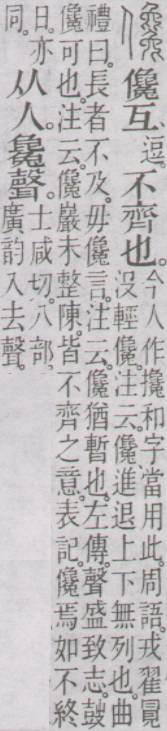 儳互。逗。不齊也。今人作攙和字當用此。周語。戎翟冐没輕儳。注云。儳進退上下無列也。曲
禮曰。長者不及。毋儳言。注云。儳猶暫也。左傳。聲盛致志。鼓儳可也。注云。儳巖未整陳。皆不齊之意。表記。儳焉如不終
日。亦同。从人。毚聲。士咸切。八部。廣韵入去聲。